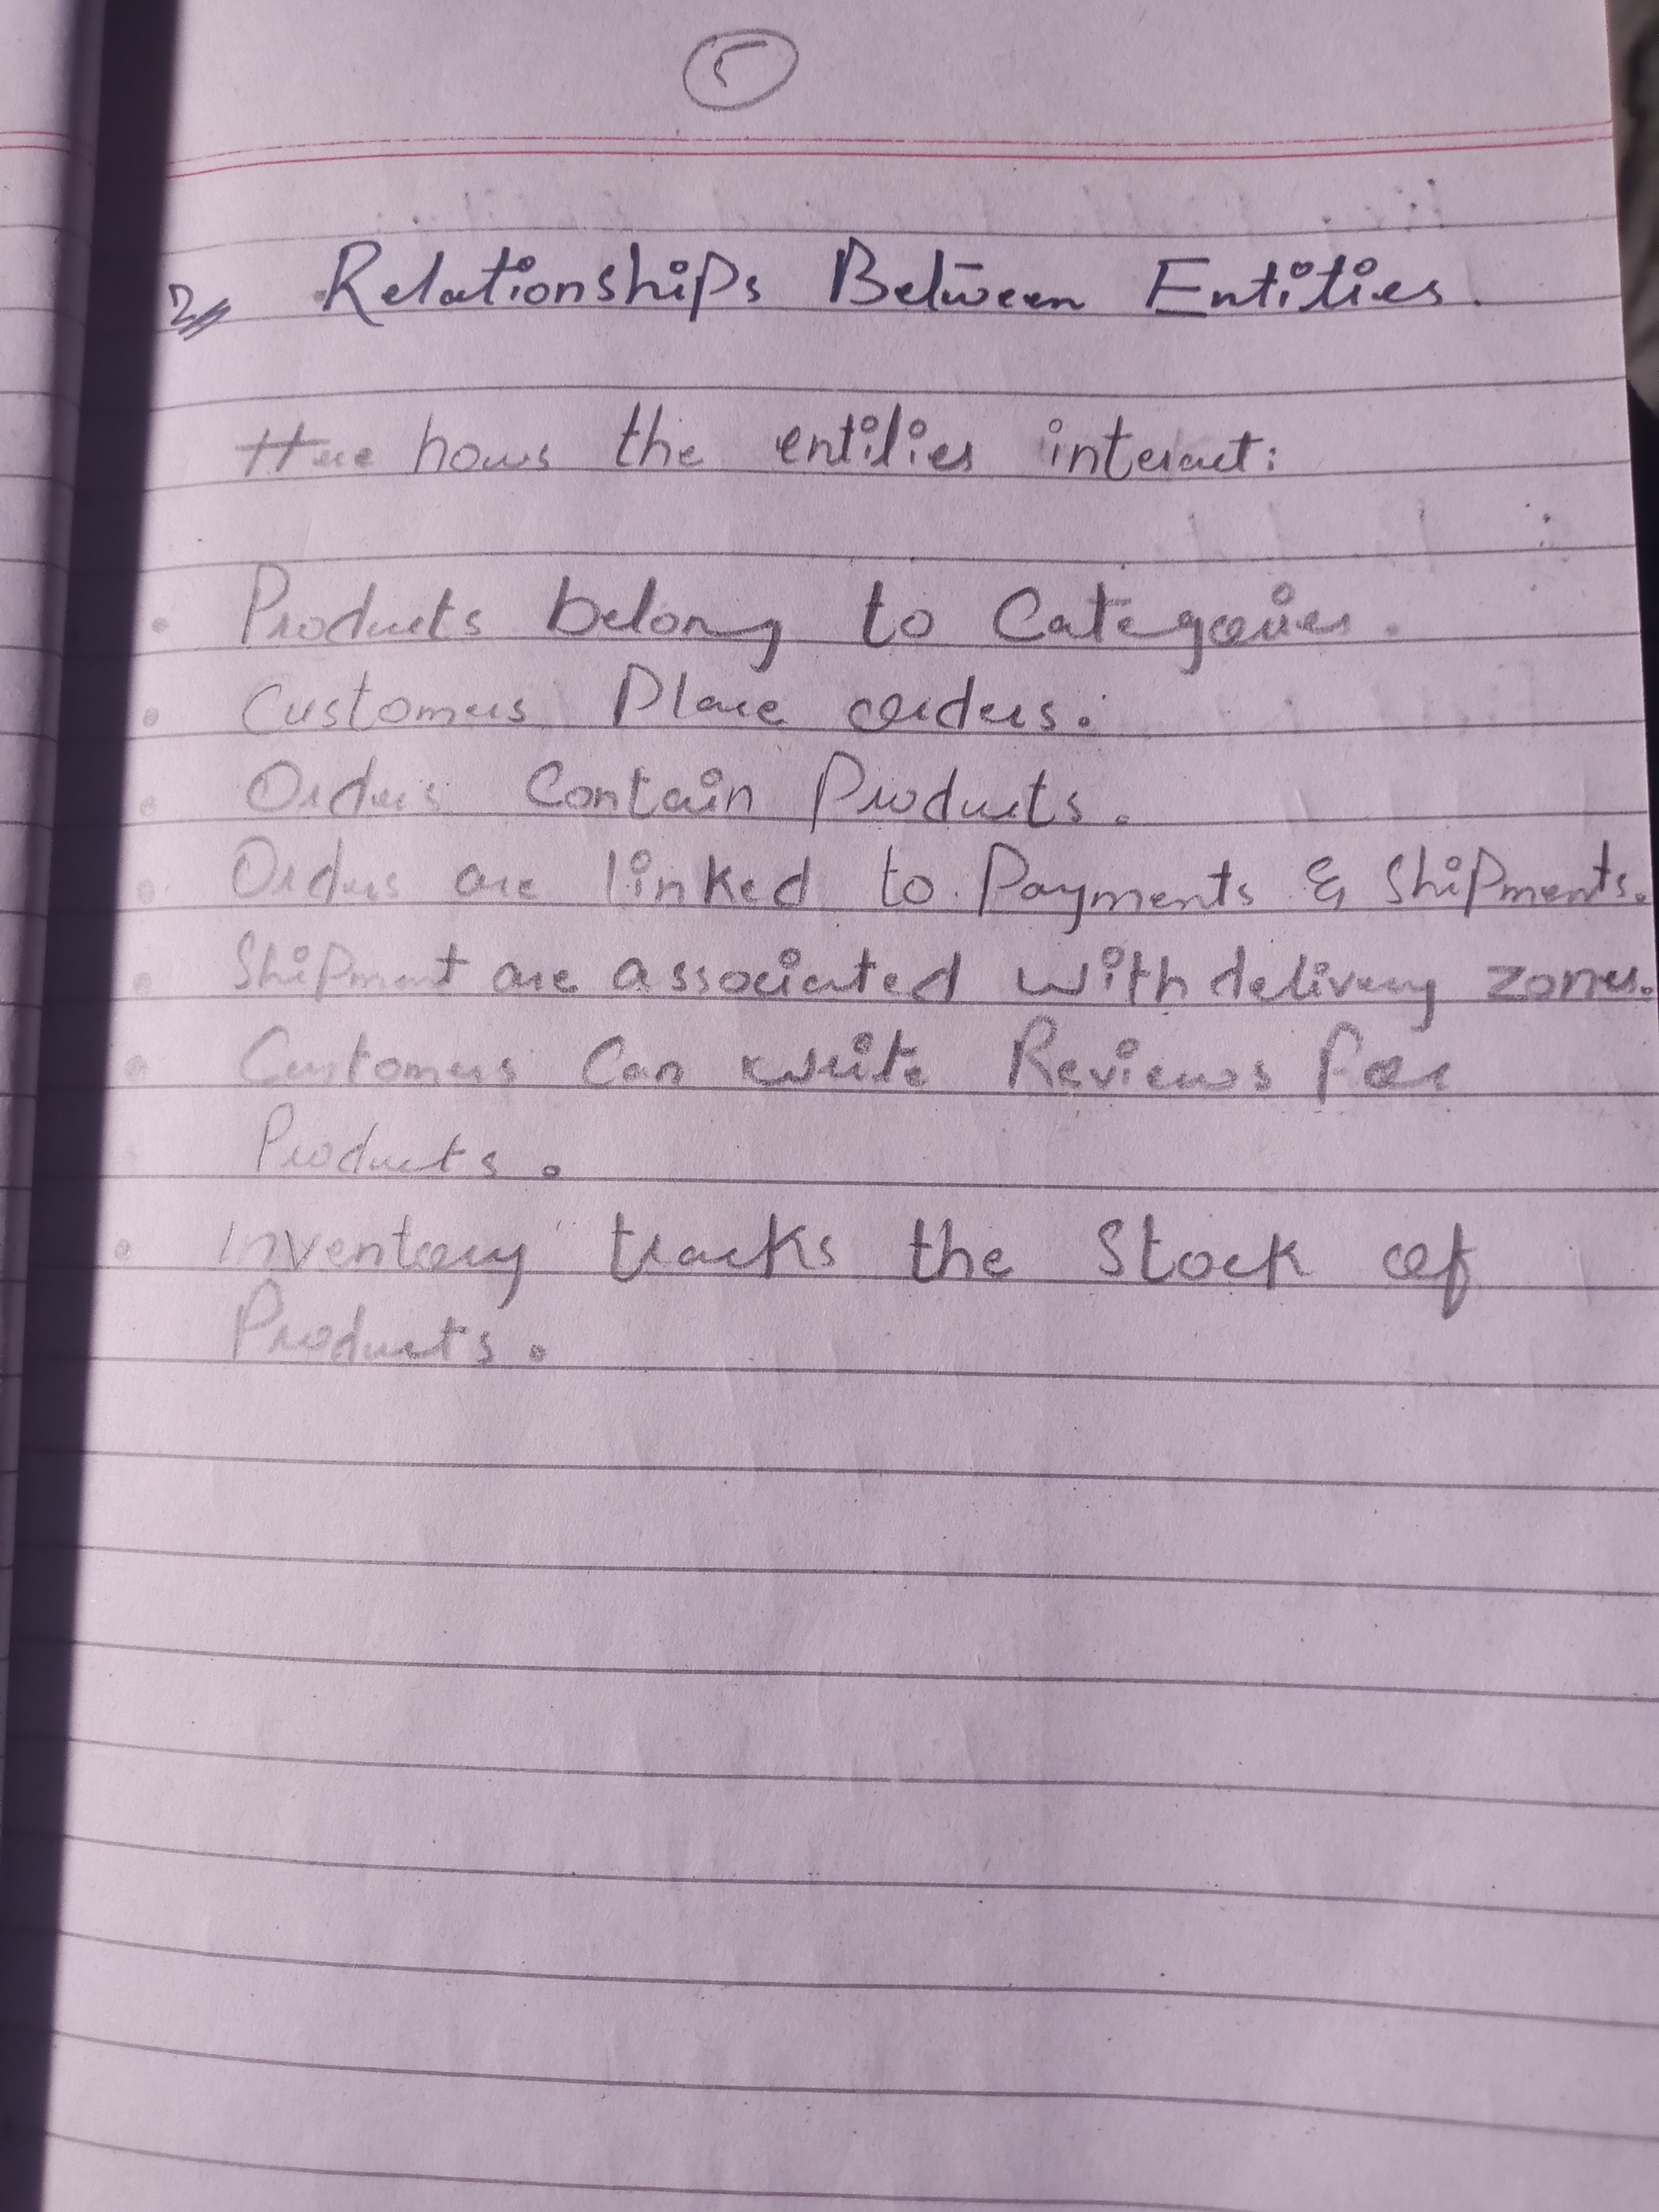 5
2// Relationships Between Entities.
Here hows the entities interact:
• Products belong to Categories.
• Customers Place orders.
• Orders Contain Products.
• Orders are linked to Payments & Shipments.
• Shipment are associated with delivery zones.
• Customers Can write Reviews for
Products.
• inventory tracks the Stock of
Products.